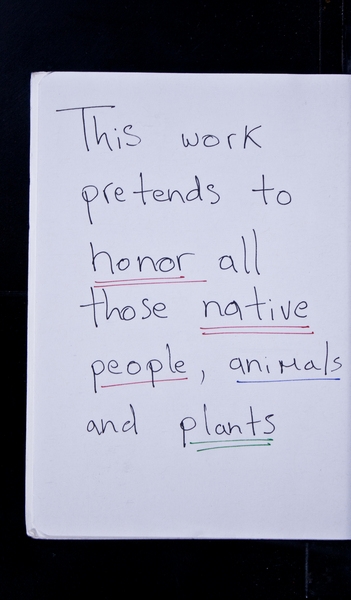 This work
pretends to
honor all
those native
people, animals
and plants